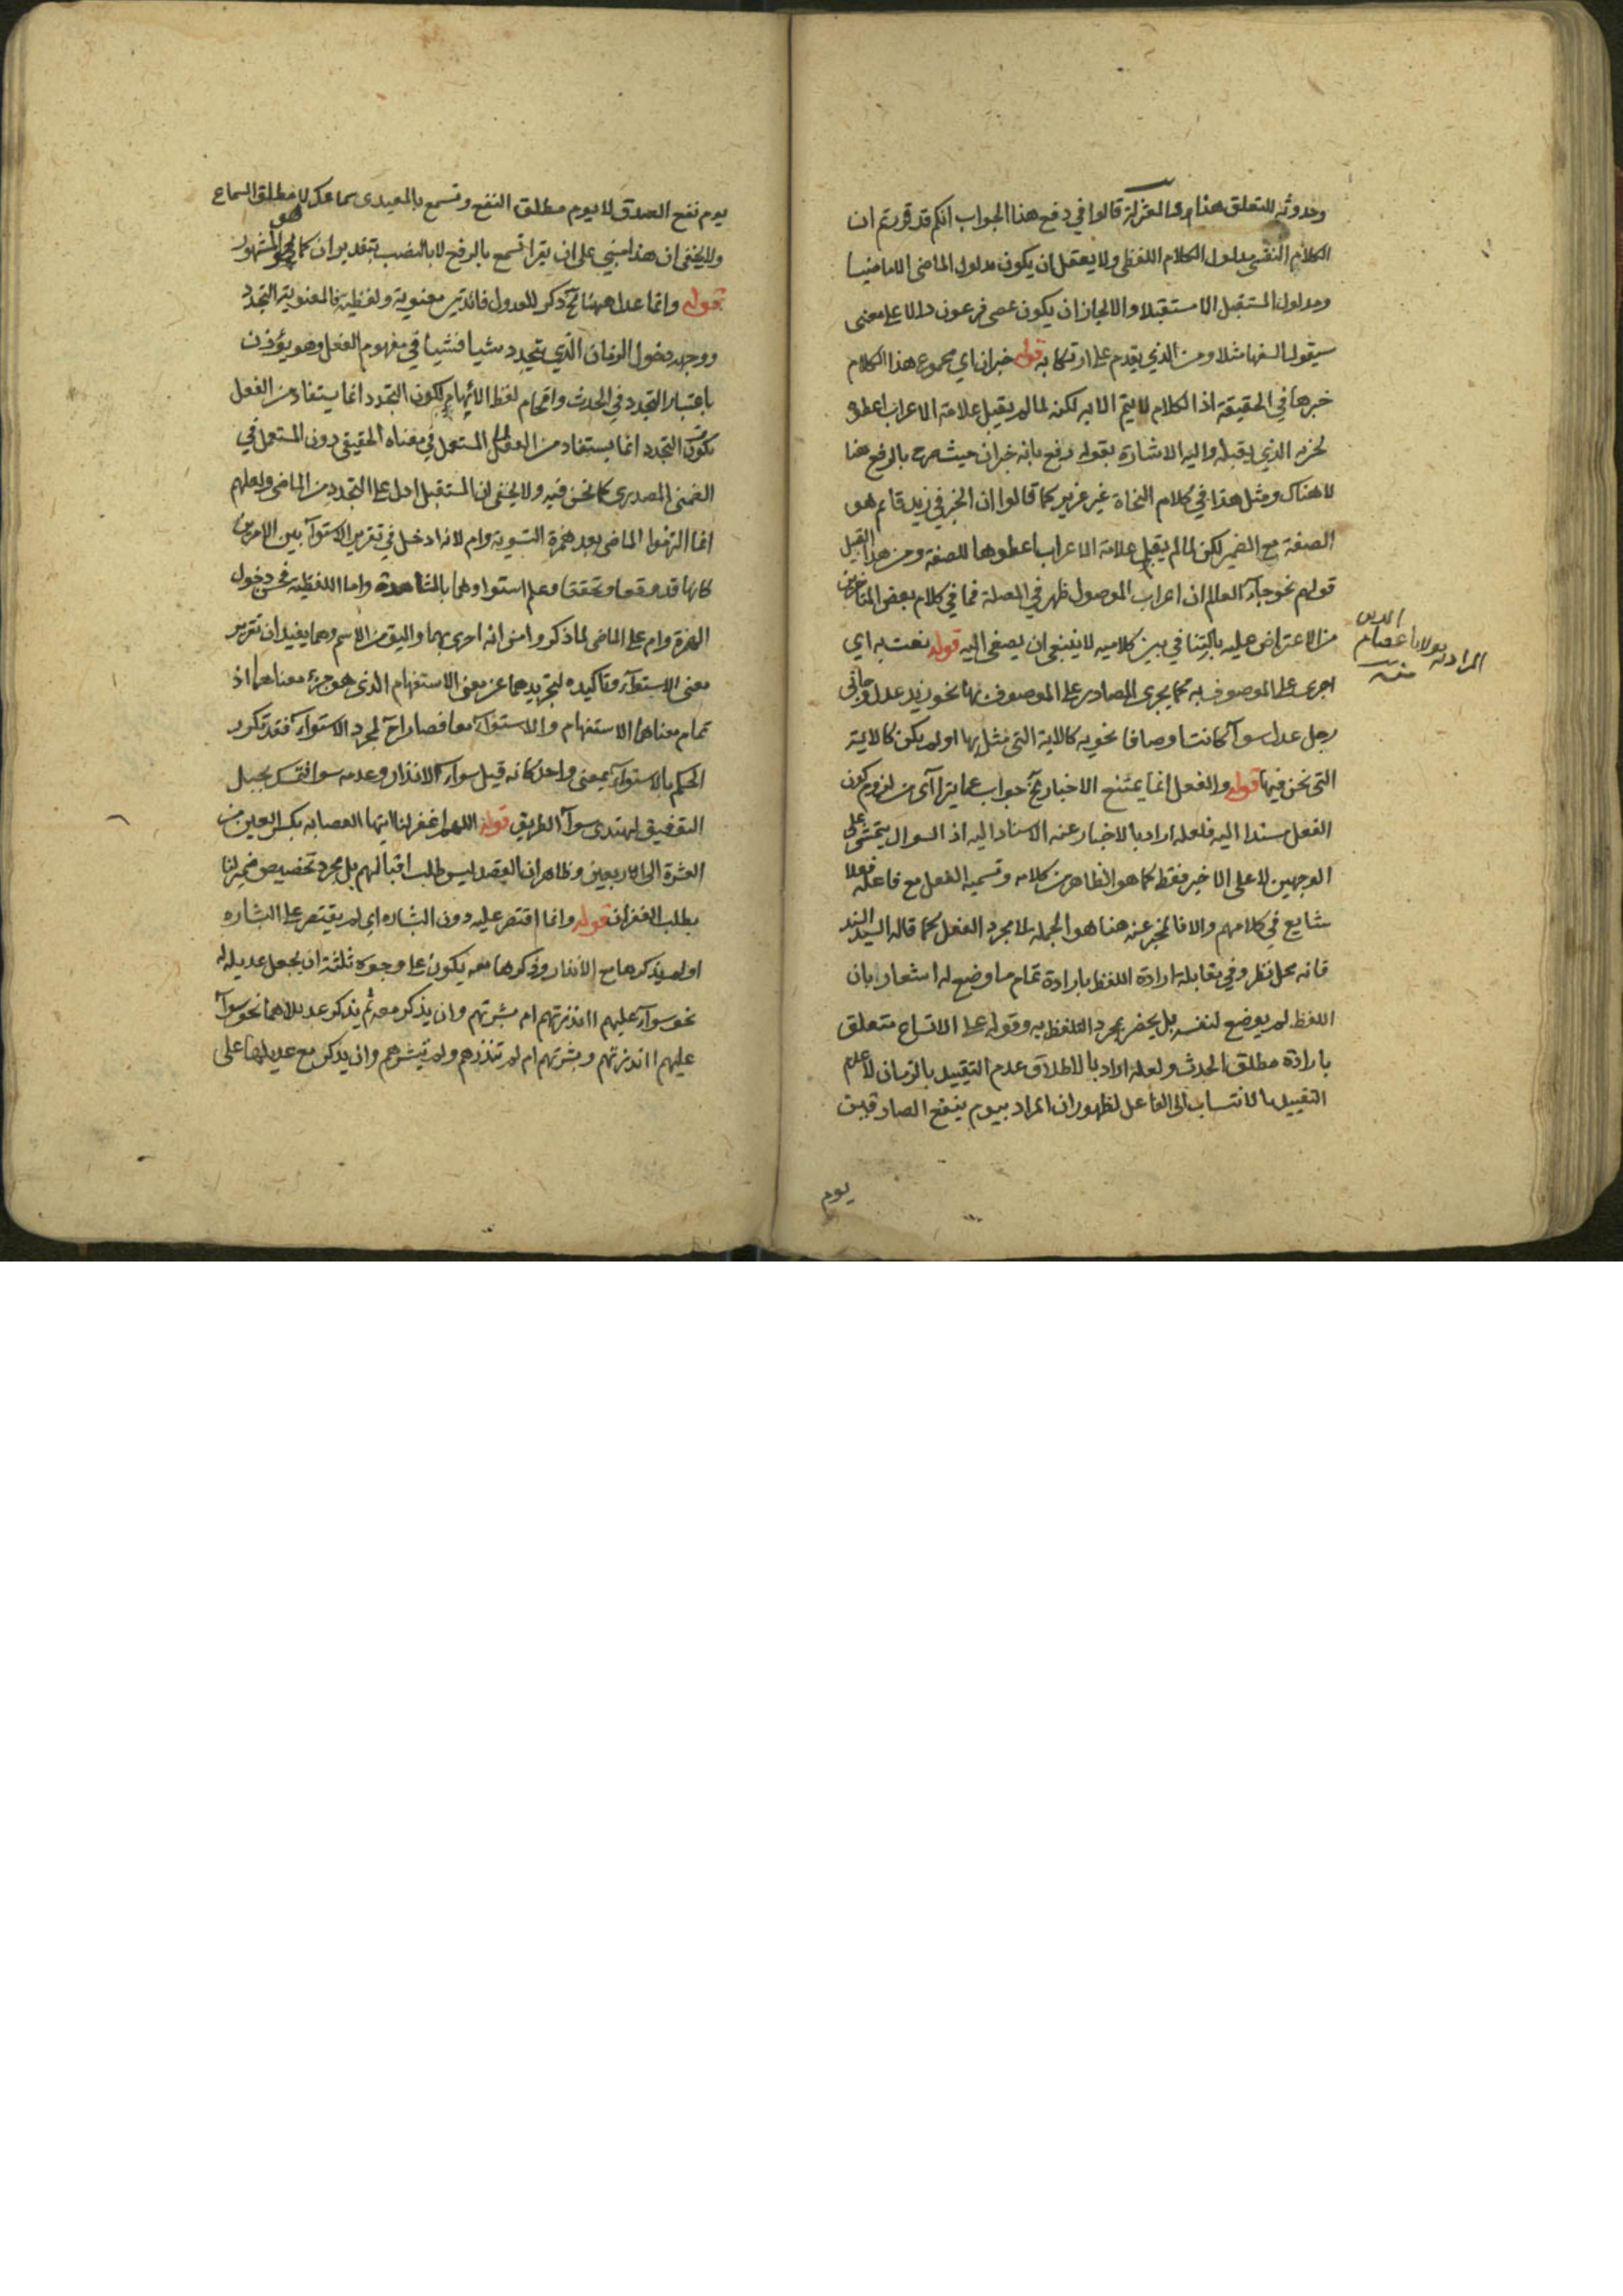 وحدوثه للتعلق هذا والمعتزلة قالوا في دفع هذا الجواب انكم قد قررتم ان
الكلام النفسى مدلول الكلام اللفظى ولا يعقل ان يكون مدلول الماضى الا ماضيا
ومدلول المستقبل الا مستقبلا والا لجاز ان يكون عصى فرعون دالا على معنى
سيقول السفها مثلا ومن الذي يقدم على ارتكابه قوله خبر ان اي مجموع هذا الكلام
خبرها في الحقيقة اذ الكلام لا يتم الا به لكنه لما لم يقبل علامة الاعراب اعطوه
لجزئه الذي يقبله واليه الاشارة بقوله رفع بانه خبر ان حيث صرح بالرفع هنا
لا هناك ومثل هذا في كلام النحاة غير عزيز كما قالوا ان الخبر في زيد قائم هو
الصفة مع الضمير لكن لما لم يقبل علامة الاعراب اعطوها للصفة ومن هذا القبيل
قولهم نحو جاء العالم ان اعراب الموصول ظهر في الصلة فما في كلام بعض المتاخرين
من الاعتراض عليه بالتنافي بين كلاميه لا ينبغي ان يصغى اليه قوله نعت به اي
اجرى على الموصوف به كما يجرى المصادر على الموصوف بها نحو زيد عدل وجاءني
رجل عدل سوآ كانت اوصافا نحويه كالاية التي مثل بها او لم يكن كالاية
التي نحن فيها قوله والفعل انما يمتنع الاخبار الخ جواب عما يترا آى من لزوم كون
الفعل مسندا اليه فلعله اراد بالاخبار عنه الاسناد اليه اذ السوال يتمشى على
الوجهين لا على الاخير فقط كما هو الظاهر من كلامه وتسمية الفعل مع فاعله فعلا
شايع في كلامهم والا فالمخبر عنه هنا هو الجملة لا مجرد الفعل كما قاله السيد السند
فانه محل نظر وفي مقابلة ارادة اللفظ بارادة تمام ما وضع له اشعار بان
اللفظ لم يوضع لنفسه بل يحضر بمجرد التلفظ به وقوله على الاتساع متعلق
بارادة مطلق الحدث ولعله اراد بالاطلاق عدم التقييد بالزمان لا عدم
التقييد بالانتساب الى الفاعل لظهور ان المراد بيوم ينفع الصادقين
يوم
الدين
المراد به مولانا عصام
منه
يوم نفع الصدق لا يوم مطلق النفع وتسمع بالمعيدى سماعك لا مطلق السماع
ولا يخفى ان هذا مبني على ان يقرا تسمع بالرفع لا بالنصب بتقدير ان كما هو المشهور
قوله وانما عدل ههنا الخ ذكر للعدول فائدتين معنوية ولفظية فالمعنوية التجدد
ووجهه دخول الزمان الذي يتجدد شيا فشيا في مفهوم الفعل وهو يؤذن
باعتبار التجدد في الحدث واقحام لفظ الايهام لكون التجدد انما يستفاد من الفعل
لكون التجدد انما يستفاد من الفعل المستعمل في معناه الحقيقي دون المستعمل في
الضمنى المصدرى كما نحن فيه ولا يخفى ان المستقبل ادل على التجدد من الماضى ولعلهم
انما التزموا الماضى بعد همزة التسوية وام لانه ادخل في تقرير الاستوآ بين الامرين
كانها قد وقعا وتحققا وعلم استواوهما بالمشاهدة واما اللفظيه فحسن دخول
الهمزة وام على الماضى لما ذكر وامن انه احرى بهما واليق من الاسم وهما يفيدان تقرير
معنى الاستوآ وتاكيده لتجريدهما عن معنى الاستفهام الذى هو جزء معناهما اذ
تمام معناهما الاستفهام والاستوآ معا فصارا لمجرد الاستوآ فقد تكرر
الحكم بالاستوآ بمعنى واحد كانه قيل سوآ الانذار وعدمه سوا فتمسك بحبل
التوفيق ليهتدى سوآ الطريق قوله اللهم اغفر لنا ايتها العصابه بكسر العين من
العشرة الى الاربعين وظاهر ان القصد ليس طلب اقبالهم بل مجرد تخصيص ضمير لنا
بطلب الغفران قوله وانما اقتصر عليه دون البشاره اي لم يقتصر على البشاره
او لم يذكرها مع الانذار وذكرها معه يكون على وجوه ثلثة ان يجعل عديله له
نحو سوآ عليهم اانذرتهم ام بشرتهم وان يذكر معه ثم يذكر عديلاهما نحو سوآ
عليهم اانذرتهم وبشرتهم ام لم تنذرهم ولم تبشرهم وان يذكر مع عديلها على